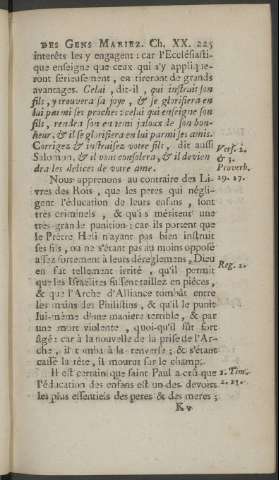 DES GENS MARIEZ. Ch. XX. 225
interêts les y engagent : car l'Ecclésiasti-
que enseigne que ceux qui s'y applique-
ront sérieusement, en tireront de grands
avantages. Celui, dit-il, qui instruit son
fils, y trouvera sa joye, & se glorifiera en
lui parmi ses proches : celui qui enseigne son
fils, rendra son ennemi jaloux de son bon-
heur, & il se glorifiera en lui parmi ses amis.
Corrigez & instruisez votre fils, dit aussi
Salomon, & il vous consolera, & il devien
dra les delices de votre ame.
Vers. 2.
& 3.
Proverb.
29. 17.
Nous apprenons au contraire des Li-
vres des Rois, que les peres qui négli-
gent l'éducation de leurs enfans, sont
très criminels, & qu'ils méritent une
très-grande punition : car ils portent que
le Prêtre Heli n'ayant pas bien instruit
ses fils, ou ne s'étant pas au moins opposé
assez fortement à leurs déréglemens, Dieu
en fut tellement irrité, qu'il permit
que les Israëlites fussent taillez en piéces,
& que l'Arche d'Alliance tombât entre
les mains des Philistins, & qu'il le punît
lui-même d'une maniere terrible, & par
une mort violente, quoi-qu'il fût fort
âgé : car à la nouvelle de la prise de l'Ar-
che, il tomba à la renverse ; & s'étant
cassé la tête, il mourut sur le champ.
Reg. 2.
Il est certain que saint Paul a crû que
l'éducation des enfans est un des devoirs
les plus essentiels des peres & des meres ;
1. Tim.
2. 15.
K v